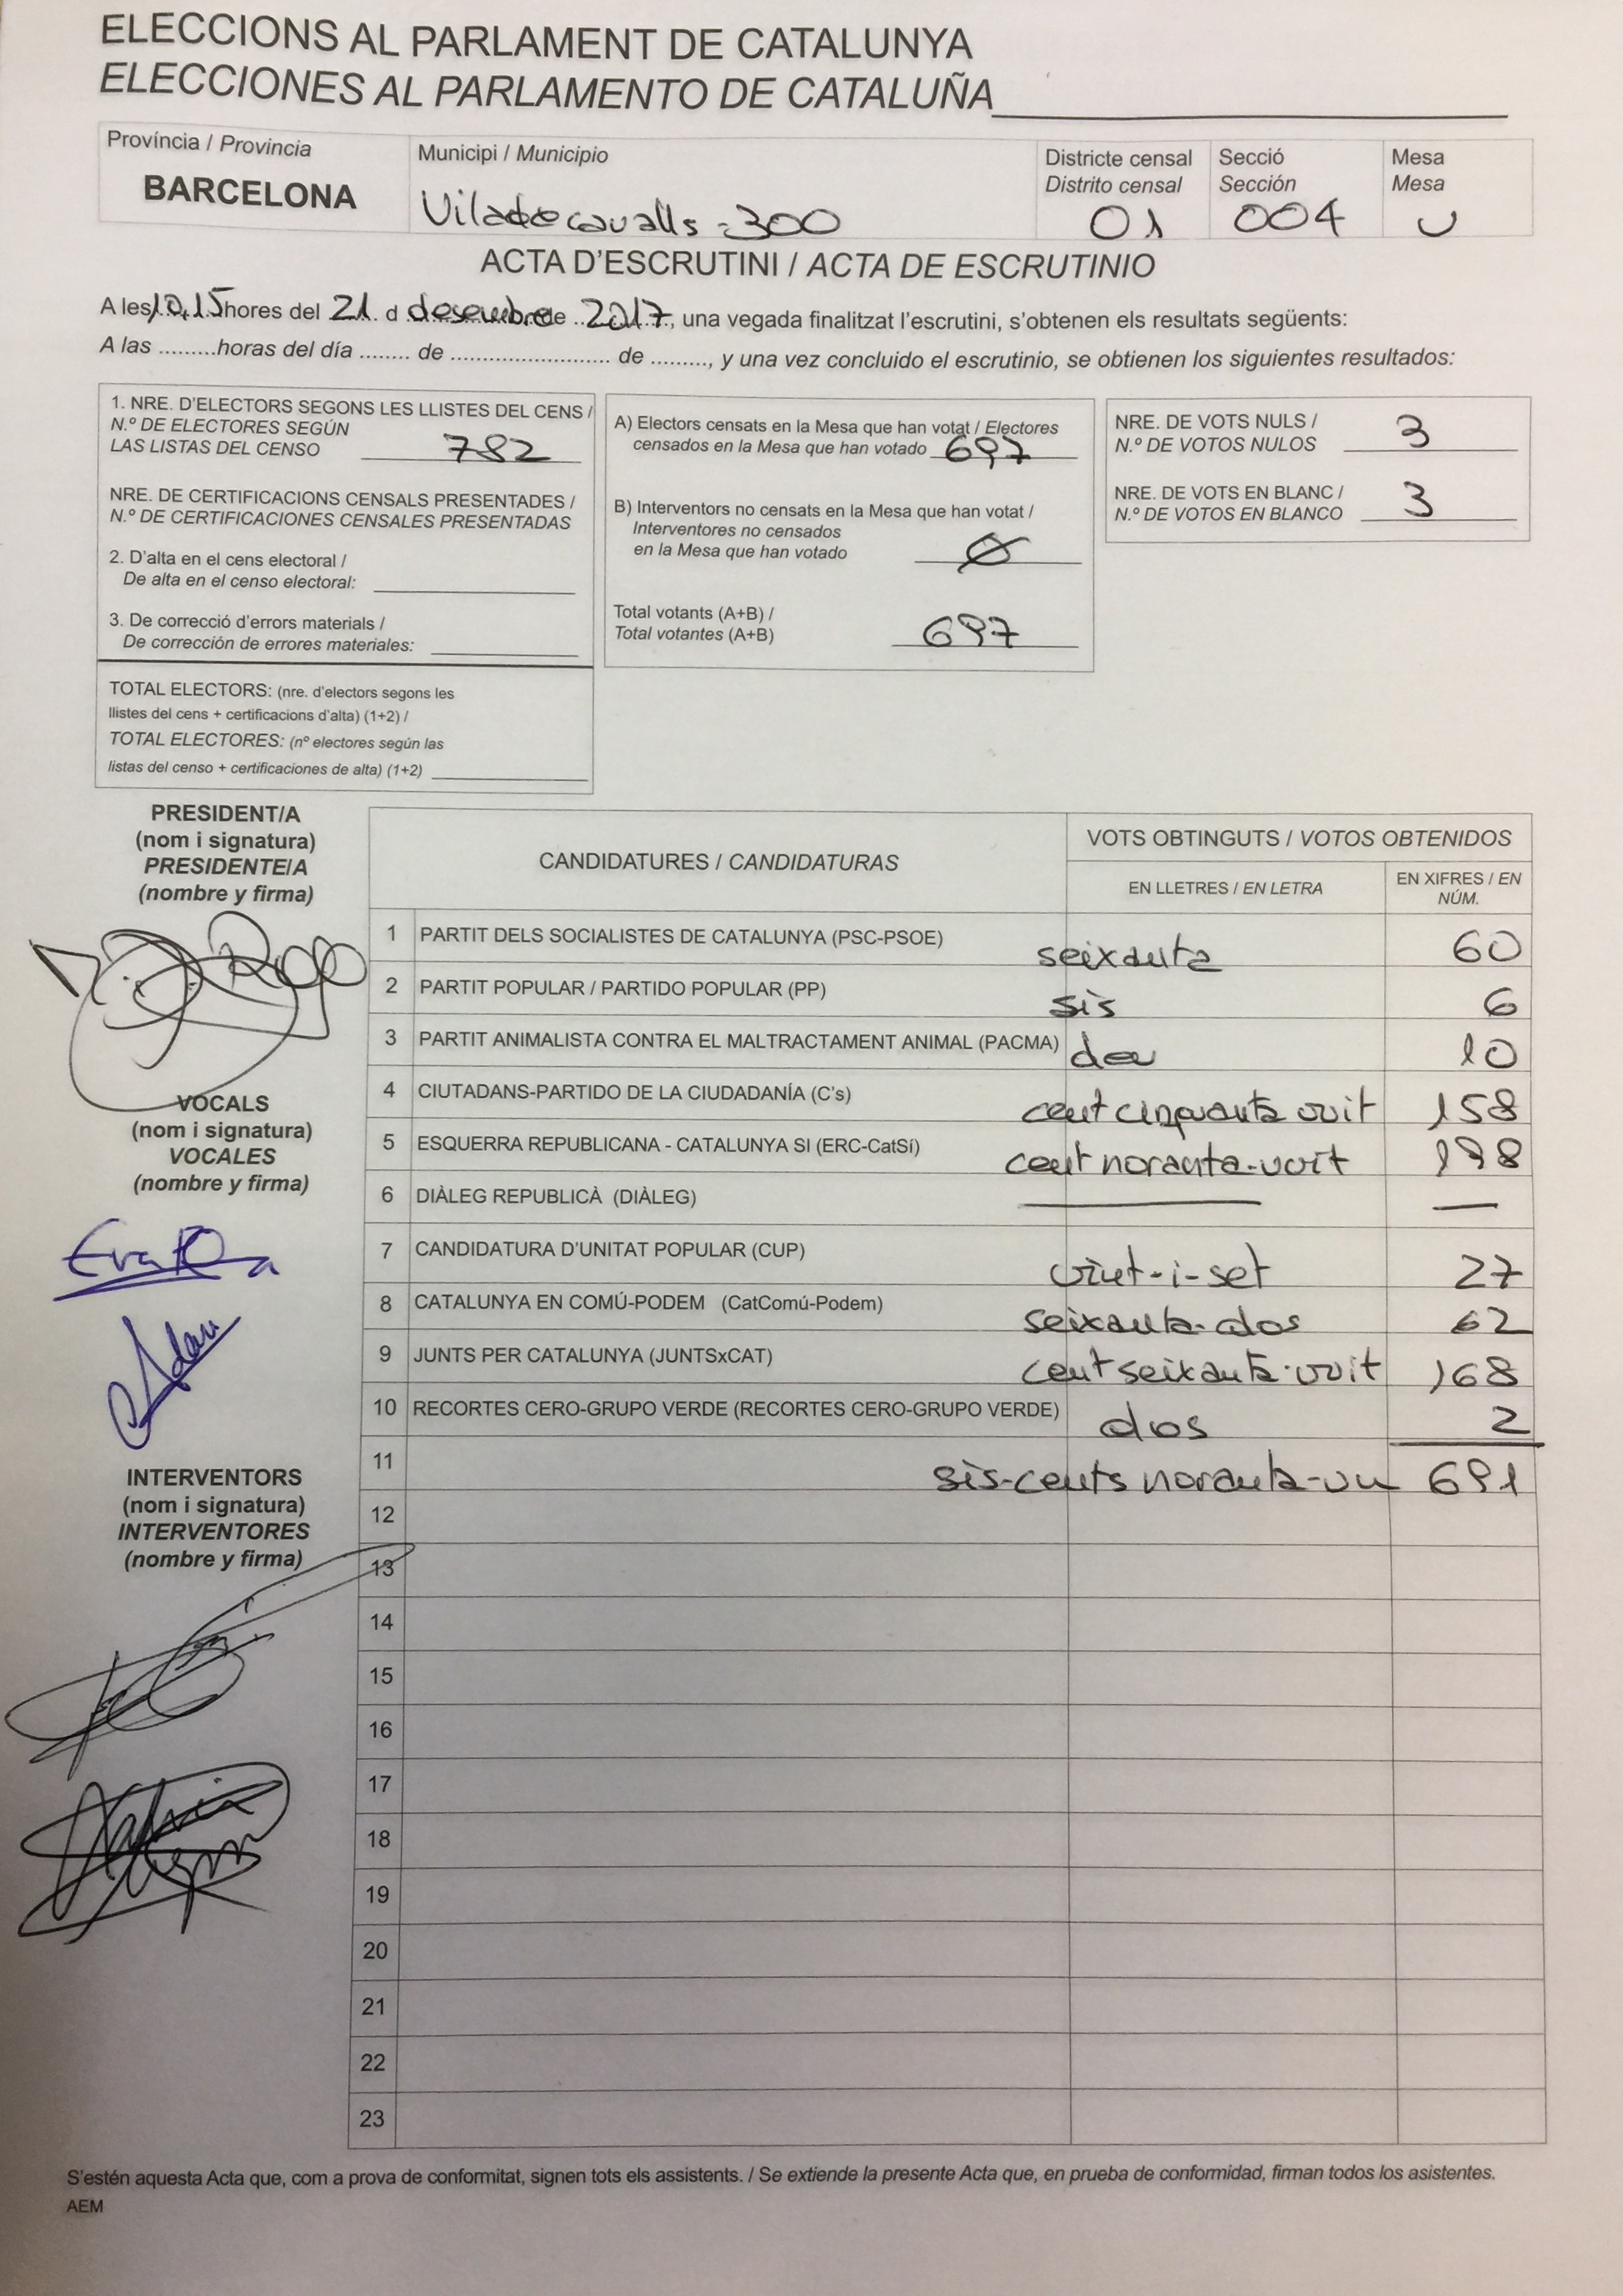 ELECCIONS AL PARLAMENT DE CATALUNYA
ELECCIONES AL PARLAMENTO DE CATALUÑA
Província / Provincia
BARCELONA
Municipi / Municipio
Viladecavalls - 300
Districte censal
Distrito censal
01
Secció
Sección
004
Mesa
Mesa
U
ACTA D'ESCRUTINI / ACTA DE ESCRUTINIO
A les 10,15 hores del 21 d desembre de 2017, una vegada finalitzat l'escrutini, s'obtenen els resultats següents:
A las .........horas del día ........ de ........................... de ........., y una vez concluido el escrutinio, se obtienen los siguientes resultados:
1. NRE. D'ELECTORS SEGONS LES LLISTES DEL CENS /
N.º DE ELECTORES SEGÚN
LAS LISTAS DEL CENSO 782
NRE. DE CERTIFICACIONS CENSALS PRESENTADES /
N.º DE CERTIFICACIONES CENSALES PRESENTADAS
2. D'alta en el cens electoral /
De alta en el censo electoral:
3. De correcció d'errors materials /
De corrección de errores materiales:
TOTAL ELECTORS: (nre. d'electors segons les
llistes del cens + certificacions d'alta) (1+2) /
TOTAL ELECTORES: (nº electores según las
listas del censo + certificaciones de alta) (1+2)
A) Electors censats en la Mesa que han votat / Electores
censados en la Mesa que han votado 697
B) Interventors no censats en la Mesa que han votat /
Interventores no censados
en la Mesa que han votado Ø
Total votants (A+B) /
Total votantes (A+B) 697
NRE. DE VOTS NULS /
N.º DE VOTOS NULOS 3
NRE. DE VOTS EN BLANC /
N.º DE VOTOS EN BLANCO 3
PRESIDENT/A
(nom i signatura)
PRESIDENTE/A
(nombre y firma)
VOCALS
(nom i signatura)
VOCALES
(nombre y firma)
INTERVENTORS
(nom i signatura)
INTERVENTORES
(nombre y firma)
CANDIDATURES / CANDIDATURAS
VOTS OBTINGUTS / VOTOS OBTENIDOS
EN LLETRES / EN LETRA
EN XIFRES / EN
NÚM.
1 PARTIT DELS SOCIALISTES DE CATALUNYA (PSC-PSOE) seixanta 60
2 PARTIT POPULAR / PARTIDO POPULAR (PP) sis 6
3 PARTIT ANIMALISTA CONTRA EL MALTRACTAMENT ANIMAL (PACMA) deu 10
4 CIUTADANS-PARTIDO DE LA CIUDADANÍA (C's) cent cinquanta vuit 158
5 ESQUERRA REPUBLICANA - CATALUNYA SI (ERC-CatSí) cent noranta-vuit 198
6 DIÀLEG REPUBLICÀ (DIÀLEG) — —
7 CANDIDATURA D'UNITAT POPULAR (CUP) vint-i-set 27
8 CATALUNYA EN COMÚ-PODEM (CatComú-Podem) seixanta-dos 62
9 JUNTS PER CATALUNYA (JUNTSxCAT) cent seixanta-vuit 168
10 RECORTES CERO-GRUPO VERDE (RECORTES CERO-GRUPO VERDE) dos 2
11 sis-cents noranta-un 691
12
13
14
15
16
17
18
19
20
21
22
23
S'estén aquesta Acta que, com a prova de conformitat, signen tots els assistents. / Se extiende la presente Acta que, en prueba de conformidad, firman todos los asistentes.
AEM